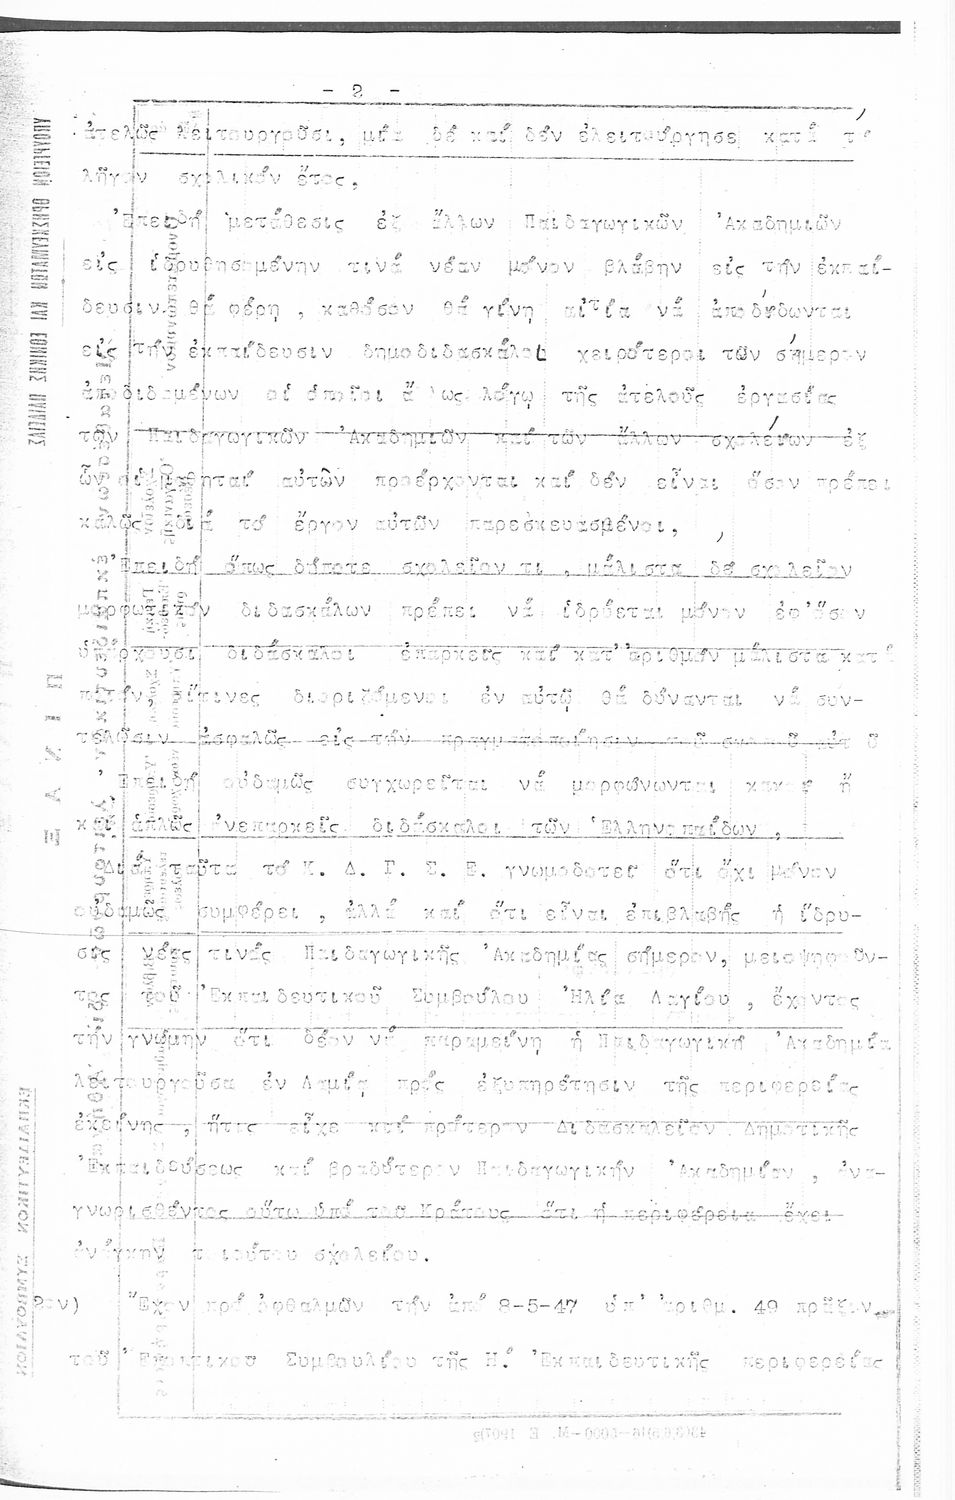 - 2 -
ἀτελῶς λειτουργοῦσι, μία δέ καί δέν ἐλειτούργησε κατά τό
λῆγον σχολικόν ἔτος,
Ἐπειδή μετάθεσις ἐξ ἄλλων Παιδαγωγικῶν Ἀκαδημιῶν
εἰς ἱδρυθησομένην τινά νέαν μόνον βλάβην εἰς τήν ἐκπαί-
δευσιν θά φέρη, καθόσον θά γίνη αἰτία νά ἀποδίδωνται
εἰς τήν ἐκπαίδευσιν δημοδιδασκάλοι χειρότεροι τῶν σήμερον
ἀποδιδομένων οἱ ὁποῖοι ἄλλως λόγῳ τῆς ἀτελοῦς ἐργασίας
τῶν Παιδαγωγικῶν Ἀκαδημιῶν καί τῶν ἄλλων σχολείων ἐξ
ὧν οἱ μαθηταί αὐτῶν προέρχονται καί δέν εἶναι ὅσον πρέπει
καλῶς διά τό ἔργον αὐτῶν παρεσκευασμένοι,
Ἐπειδή ὅπως δήποτε σχολεῖον τι, μάλιστα δέ σχολεῖον
μορφωτικόν διδασκάλων πρέπει νά ἱδρύεται μόνον ἐφ'ὅσον
ὑπάρχουσι διδάσκαλοι ἐπαρκεῖς καί κατ'ἀριθμόν μάλιστα κατά
ποιόν, οἵτινες διοριζόμενοι ἐν αὐτῷ θά δύνανται νά συν-
τελῶσιν ἀσφαλῶς εἰς τήν πραγματοποίησιν τοῦ σκοποῦ αὐτοῦ
Ἐπειδή οὐδαμῶς συγχωρεῖται νά μορφώνωνται κακοί ἤ
καί ἁπλῶς ἀνεπαρκεῖς διδάσκαλοι τῶν Ἑλληνοπαίδων,
Διά ταῦτα τό Κ. Δ. Γ. Σ. Ε. γνωμοδοτεῖ ὅτι ὄχι μόνον
οὐδαμῶς συμφέρει, ἀλλά καί ὅτι εἶναι ἐπιβλαβής ἡ ἵδρυ-
σις νέας τινός Παιδαγωγικῆς Ἀκαδημίας σήμερον, μειοψηφοῦν-
τος τοῦ Ἐκπαιδευτικοῦ Συμβούλου Ἠλία Λαγίου, ἔχοντος
τήν γνώμην ὅτι δέον νά παραμείνη ἡ Παιδαγωγική Ἀκαδημία
λειτουργοῦσα ἐν Λαμίᾳ πρός ἐξυπηρέτησιν τῆς περιφερείας
ἐκείνης, ἥτις εἶχε καί πρότερον Διδασκαλεῖον Δημοτικῆς
Ἐκπαιδεύσεως καί βραδύτερον Παιδαγωγικήν Ἀκαδημίαν, ἀνα-
γνωρισθέντος οὕτω ὑπό τοῦ Κράτους ὅτι ἡ περιφέρεια ἔχει
ἀνάγκην τοιούτου σχολείου.
2ον) Ἔχον πρό ὀφθαλμῶν τήν ἀπό 8-5-47 ὑπ' ἀριθμ. 49 πρᾶξιν
τοῦ Ἐποπτικοῦ Συμβουλίου τῆς Η΄ Ἐκπαιδευτικῆς περιφερείας